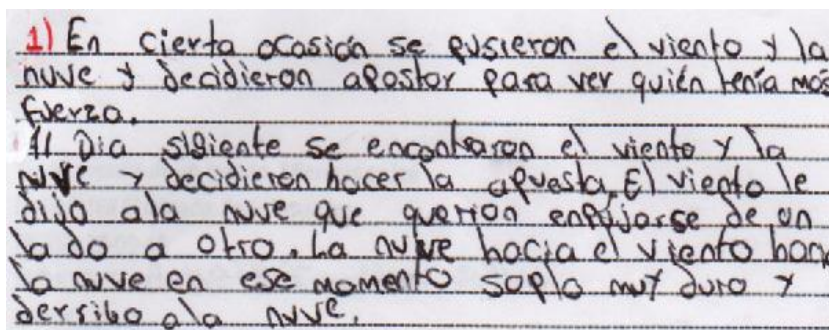 1) En cierta ocasión se pusieron el viento y la
nuve y decidieron apostar para ver quién tenía mas
fuerza.
Al Dia sigiente se encontraron el viento y la
nuve y decidieron hacer la apuesta. El viento le
dijo ala nuve que querion enpujarse de un
lado a otro. La nuve hacia el viento
la nuve en ese momento soplo muy duro y
derribo ala nuve.